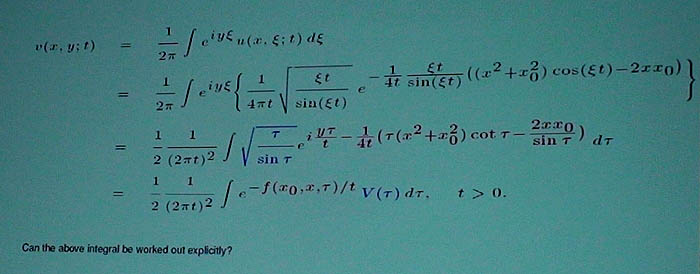 v(x, y; t) = \frac{1}{2\pi} \int e^{iy\xi} u(x, \xi; t) \, d\xi
= \frac{1}{2\pi} \int e^{iy\xi} \left\{ \frac{1}{4\pi t} \sqrt{\frac{\xi t}{\sin(\xi t)}} e^{-\frac{1}{4t} \frac{\xi t}{\sin(\xi t)} ((x^2 + x_0^2) \cos(\xi t) - 2xx_0)} \right\}
= \frac{1}{2} \frac{1}{(2\pi t)^2} \int \sqrt{\frac{\tau}{\sin \tau}} e^{i\frac{y\tau}{t} - \frac{1}{4t} (\tau(x^2 + x_0^2) \cot \tau - \frac{2xx_0}{\sin \tau})} \, d\tau
= \frac{1}{2} \frac{1}{(2\pi t)^2} \int e^{-f(x_0, x, \tau)/t} V(\tau) \, d\tau, \quad t > 0.
Can the above integral be worked out explicitly?